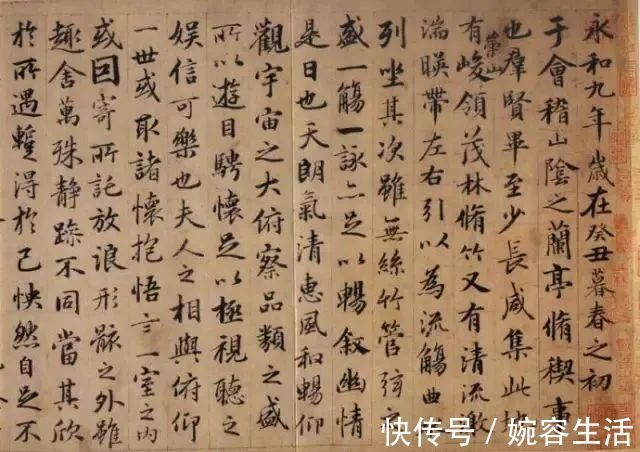 永和九年歲在癸丑暮春之初
于會稽山陰之蘭亭脩稧事
也群賢畢至少長咸集此地
有崇山峻領茂林脩竹又有清流激
湍暎帶左右引以為流觴曲水
列坐其次雖無絲竹管弦之
盛一觴一詠亦足以暢叙幽情
是日也天朗氣清惠風和暢仰
觀宇宙之大俯察品類之盛
所以遊目騁懷足以極視聽之
娛信可樂也夫人之相與俯仰
一世或取諸懷抱悟言一室之内
或因寄所託放浪形骸之外雖
趣舍萬殊静躁不同當其欣
於所遇蹔得於己怏然自足不
快传号 / 婉容生活